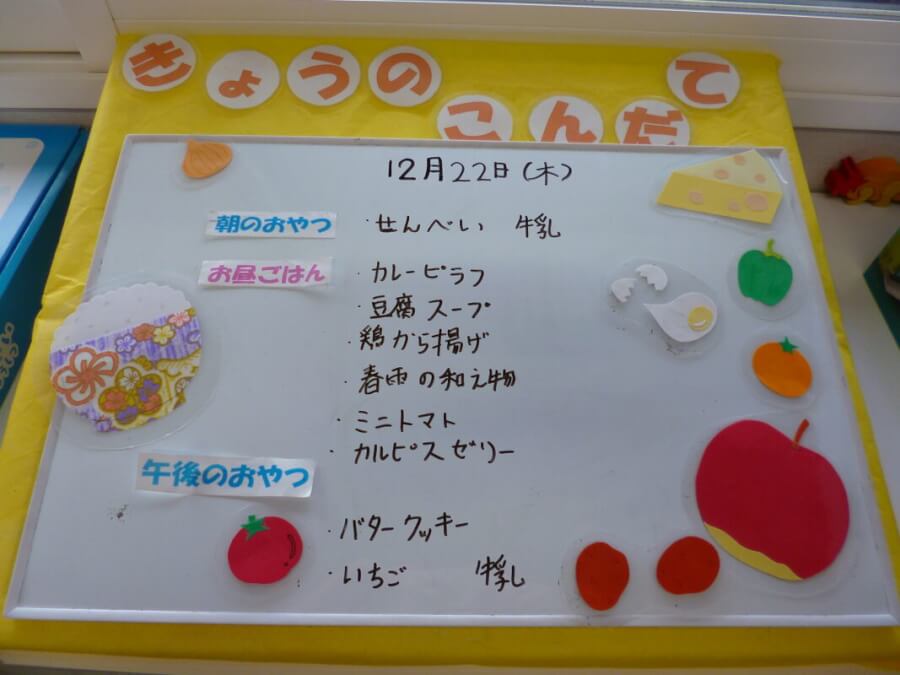 きょうの
こんだて
12月22日(木)
朝のおやつ ・せんべい 牛乳
お昼ごはん ・カレーピラフ
・豆腐スープ
・鶏から揚げ
・春雨の和え物
・ミニトマト
・カルピスゼリー
午後のおやつ
・バタークッキー
・いちご 牛乳